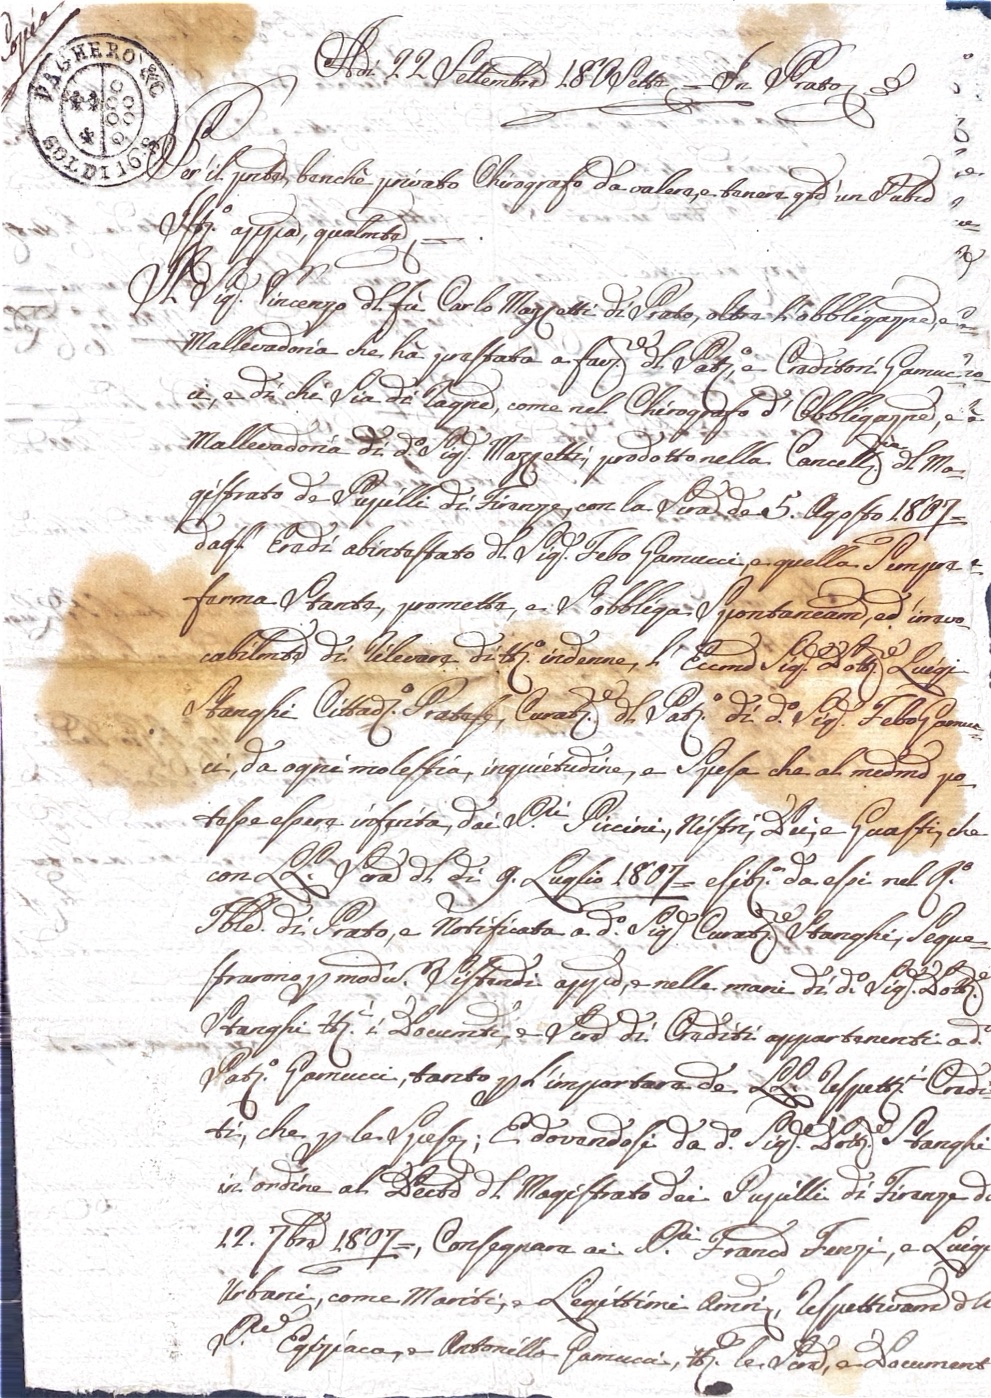 Copia
PAGHERO &C
SOLDI 16.8
Adi 22 Settembre 180Sette = In Prato
Per il pnte, benchè privato Chirografo da valere, e tenere qto un Pubco
Istr.o appd, qualmte, =
Il Sig.r Vincenzo del fù Carlo Mazzetti di Prato, oltre l'obbligazne, e
Mallevadoria che hà prestata a fav.re del Pat.o, e Creditori Gamuc-
ci, e di chi Sia di ragne, come nel Chirografo d'Obbligazne, e
Mallevadoria di d.o Sig.r Mazzetti, prodotto nella Cancell.ria del Ma-
gistrato de Pupilli di Firenze, con la Scra de 5. Agosto 1807=
dagl' Eredi abintestato del Sig.r Febo Gamucci, e quella Sempre
ferma Stante, promette, e S'obbliga Spontaneamte, ed irrevo-
cabilmte di rilevare di tt.o indenne, l'Eccmo Sig.r Dott.re Luigi
Stanghi Cittad.o Pratese, Curat.re del Pat.o di d.o Sig.r Febo Gamuc-
ci, da ogni molestia, inquietudine, e Spesa che al medmo po-
tesse essere inferita, dai P.ri Piccini, Nistri, Dei, e Guasti, che
con LL. Scre del dì 9. Luglio 1807= esib.e da essi nel R.o
Tble. di Prato, e Notificata a d.o Sig.r Curat.re Stanghi, Seque-
strarono p modu. Sistendi appd, e nelle mani di d.o Sig.r Dott.re
Stanghi tt.i i Documenti, e Scre di Crediti appartenenti a d.o
Pat.o Gamucci, tanto p l'importare de LL. respett.i Credi-
ti, che p le Spese; E dovendosi da d.o Sig.r Dott.re Stanghi
in ordine al Decto del Magistrato dei Pupilli di Firenze d
12. 7bre 1807=, Consegnare ai P.ri Franco Fenzi, e Luigi
Urbani, come Mariti, e Legittimi Ammri, respettivamte d
P.re Egiziaca, e Antonilla Gamucci, tt.e le Scre, e Document